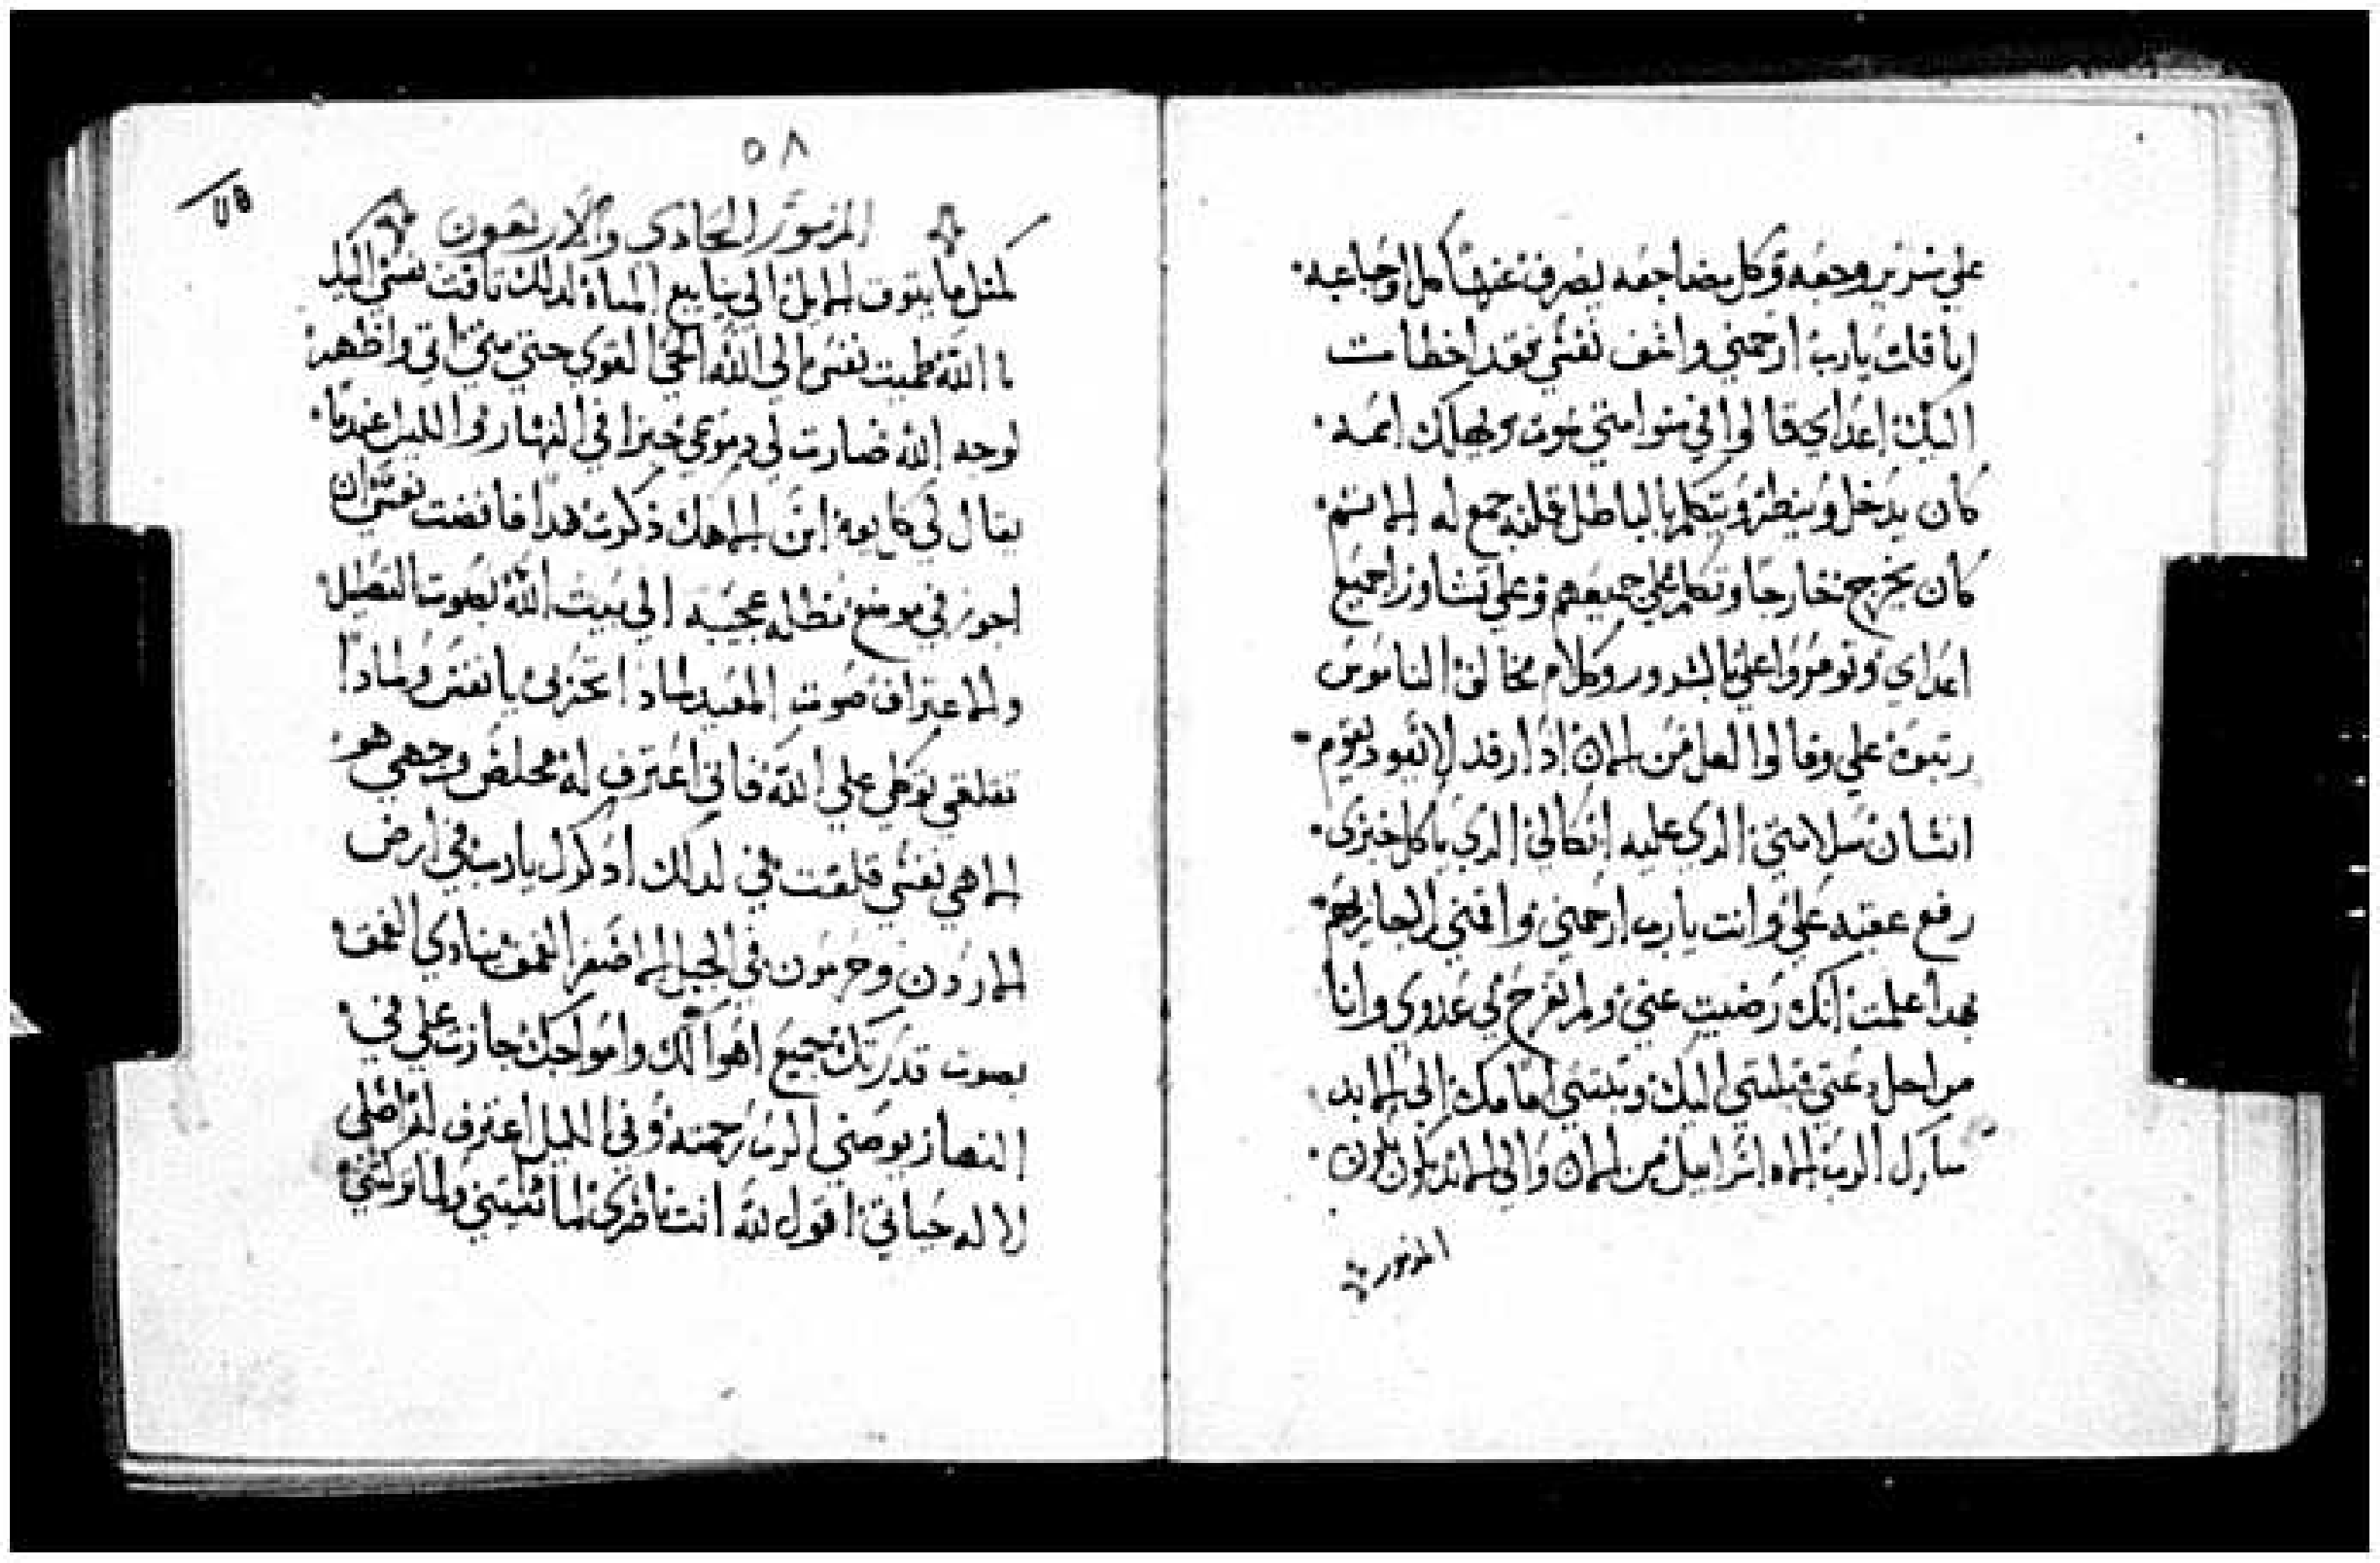 علي سرير وجعه وكل مضاجعه يصرف عنه كل اوجاعه
انا قلت يارب ارحمني واشف نفسي فقد اخطات
اليك اعداي قالوا في سوا متي يموت ويهلك اسمه
كان يدخل وينظر ويتكلم بالباطل قلبه جمع له الاثم
كان يخرج خارجا وتكلم علي جميعهم وعلي تشاوز جميع
اعداي وتومروا علي بالشرور وكلام مخالف الناموس
رتبوه علي وقالوا لعل من الان اذا رقد لا يعود يقوم
انسان سلامتي الدي عليه اتكالي الدي ياكل خبزي
رفع عقبه علي وانت يارب ارحمني واقمني لاجازيهم
بهدا علمت انك رضيت عني ولم يفرح بي عدوي وانا
من اجل دعتي قبلتني اليك وتبتني امامك الي الابد
تبارك الرب اله اسراييل من الان والي الابد يكون يكون
المزمور
٥٨
٧٥
المزمور الحادي والاربعون
كمثل ما يتوق الايل الي ينابيع المياه لدلك تاقت نفسي اليك
يا الله ظميت نفسي الي الله الحي القوي حتي متي اتي واظهر
لوجه الله صارت لي دموعي خبزا في النهار والليل عندما
يقال لي كل يوم اين الاهك ذكرت هدا فافضت نفسي ان
اجوز في موضع مظله عجيبه الي بيت الله بصوت التهليل
والاعتراف صوت المعيد لمادا تحزني يا نفس ولمادا
تقلقي توكلي علي الله فاني اعترف له مخلص وجهي هو
الاهي نفسي قلقت في لدلك ادكرك يارب في ارض
الاردن وحرمون في الجبل الاصغر العمق ينادي العمق
بصوت قدرتك جميع اهوالك وامواجك جازت علي في
النهار يوصي الرب رحمته وفي الليل اعترف له صلي
لاله حياتي اقول لله انت ناظري لما نسيتني ولما تركتني